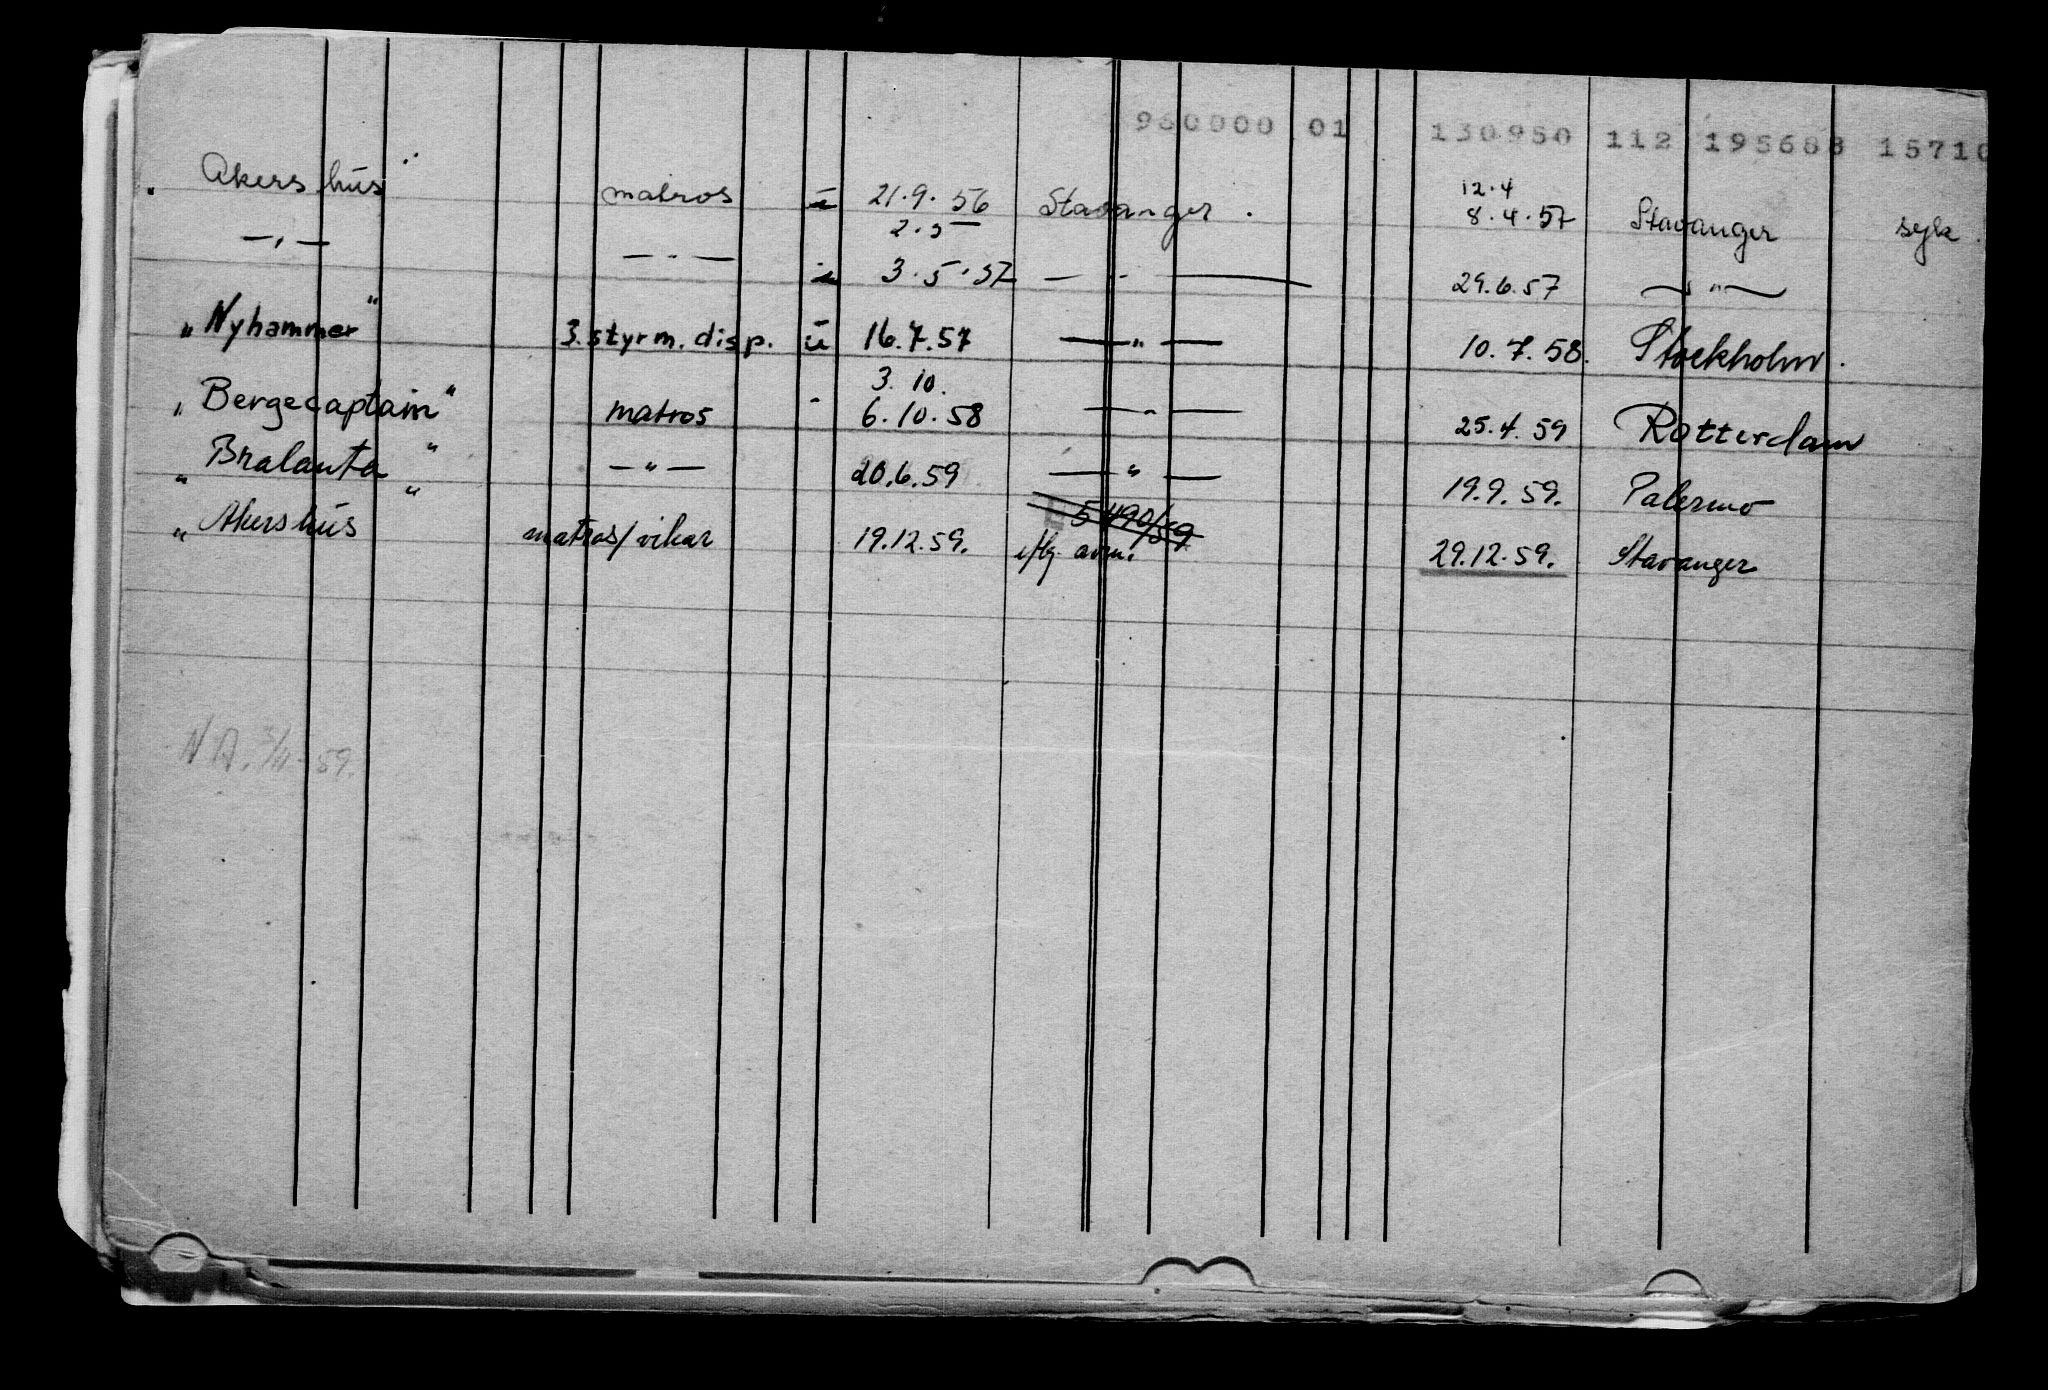 960000 01 130950 112 195688 15710
"Akershus" matros u 21.9.56 Stavanger. 12.4 8.4.57 Stavanger syk.
2.5
—"— —"— u 3.5.57 —"— 29.6.57 —"—
"Nyhammer" 3.styrm.disp. u 16.7.57 —"— 10.7.58. Stockholm.
3.10.
"Bergecaptain" matros " 6.10.58 —"— 25.4.59 Rotterdam
"Bralanta" —"— 20.6.59 —"— 19.9.59. Palermo
5490/59
"Akershus" matros/vikar 19.12.59. iflg avm. 29.12.59. Stavanger
N A. 3/11-59.